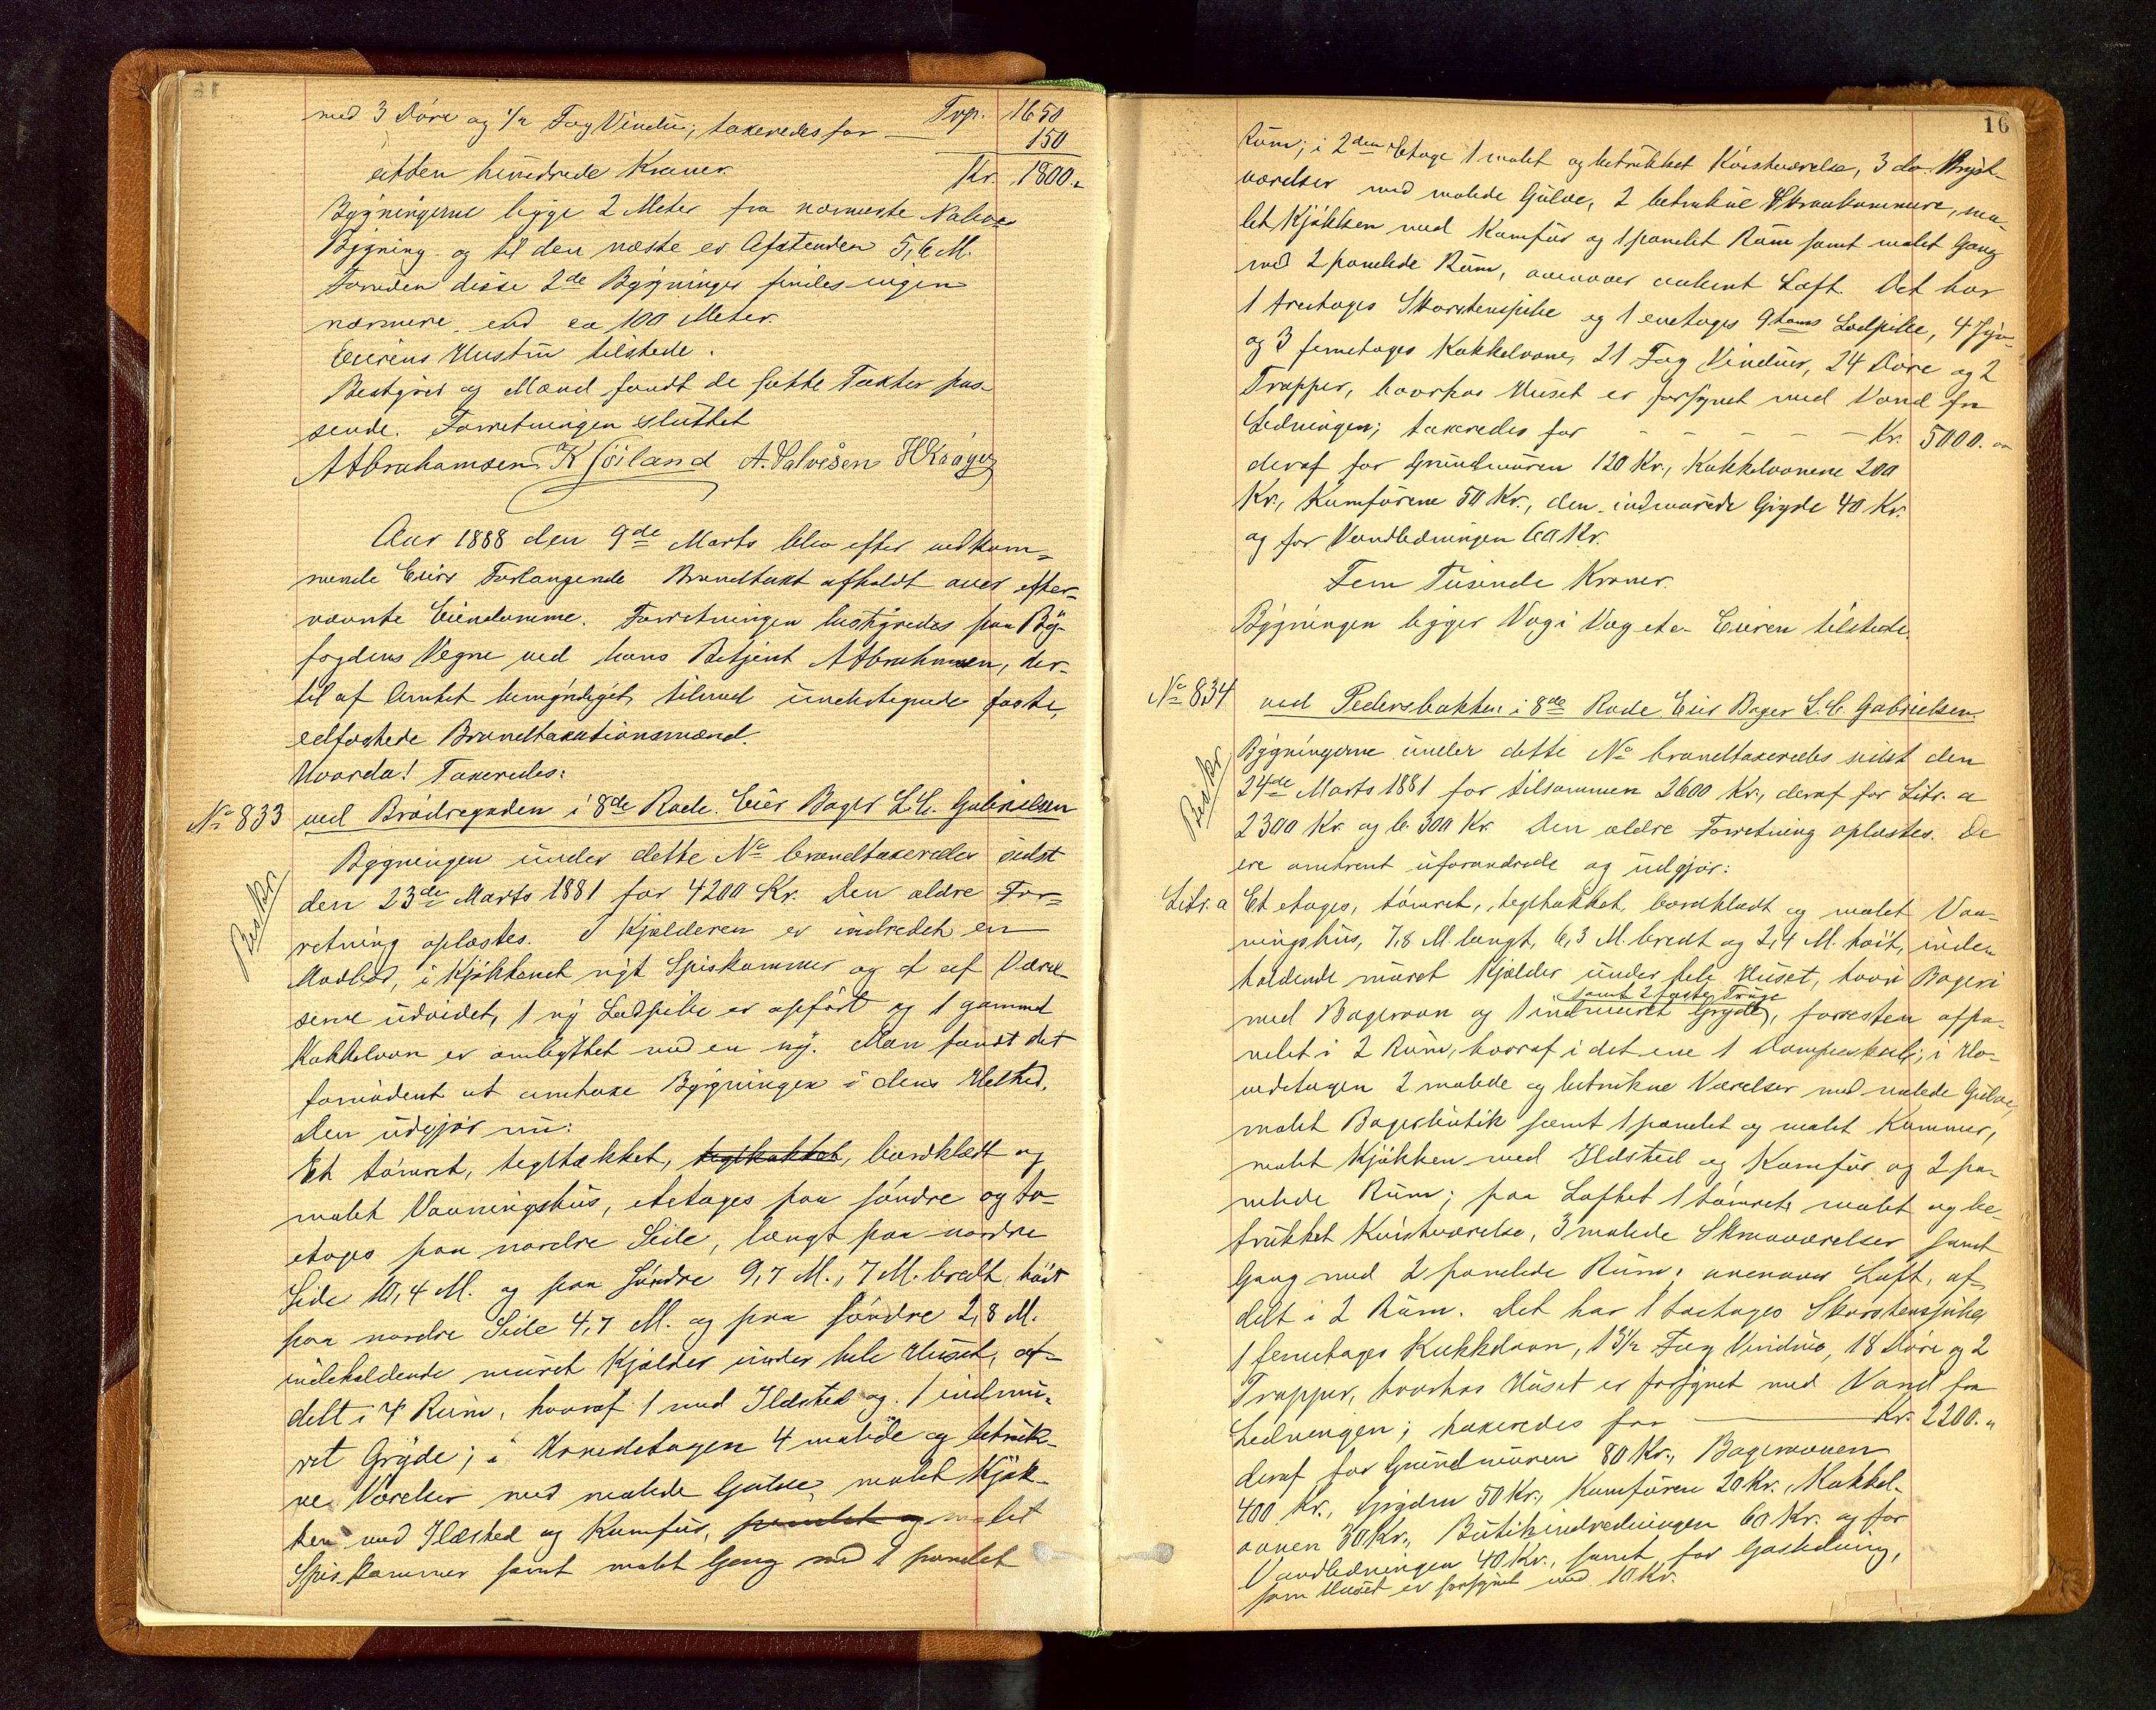 med 3 Döre og 1/2 Fag Vindu; takseredes for — Trp. 1650
150
atten hundrede Kroner Kr. 1800."
Bygningerne ligge 2 Meter fra nærmeste Nabo-
Bygning og til den næste er Afstanden 5,6 M.
Foruden disse 2de Bygninger findes ingen
nærmere end ca 100 Meter.
Eierens Hustru tilstede.
Bestyrer og Mænd fandt de satte Takster pas-
sende. Forretningen sluttet
A Abrahamsen K Söiland A. Salvesen H Kröger
Aar 1888 den 9de Marts blev efter vedkom-
mende Eiers Forlangende Brandtakst afholdt over efter-
nævnte Eiendomme. Forretningen bestyredes paa By-
fogdens Vegne ved hans Betjent A Abrahamsen, der-
til af Amtet bemyndiget, tilmed undertegnede faste,
edfæstede Brandtaxationsmænd.
Hvorda! Taxeredes:
No 833 ved Brödregaden i 8de Rode. Eier Bager L. C. Gabrielsen
Beskr.
Bygningen under dette No brandtaxeredes sidst
den 23de Marts 1881 for 4200 Kr. Den ældre For-
retning oplæstes. I Kjælderen er indredet en
Madbod, i Kjökkenet nyt Spiskammer og et af Værel-
serne udvidet, 1 ny Lodpibe er opfört og 1 gammel
Kakkelovn er ombyttet med en ny. Man fandt det
fornödent at omtaxe Bygningen i dens Helhed.
Den udgjör nu:
Et tömret, teglhækket, teglhakket, bordklædt og
malet Vaaningshus, etetages paa söndre og to-
etages paa nordre Side, langt paa nordre
Side 10,4 M. og paa Söndre 9,7 M., 7 M. bredt, höit
paa nordre Side 4,7 M. og paa söndre 2,8 M.
indeholdende muret Kjælder under hele Huset, af-
delt i 4 Rum, hvoraf 1 med Ildsted og 1 indmu-
ret Gryde; i Hovedetagen 4 malede og betruk-
ne Værelser med malede Gulve, malet Kjök-
ken med Ildsted og Komfur, panelet og malet
Spiskammer samt malet Gang med 1 panelet
16
Rum; i 2den Etage 1 malet og betrukket Kvistværelse, 3 do. Bryst-
værelser med malede Gulve, 2 betrukne Skraakammere, ma-
let Kjökken med Komfur og 1 panelet Rum samt malet Gang
med 2 panelede Rum, ovenover aabent Loft. Det har
1 treetages Skorstenspibe og 1 enetages 9toms Lodpibe, 4 fyr-
og 3 femetages Kakkelovne, 21 Fag Vinduer, 24 Döre og 2
Trapper, hvorhos Huset er forsynet med Vand fra
Ledningen; takseredes for — — — — Kr. 5000."
deraf for Grundmuren 120 Kr., Kakkelovnene 200
Kr., Komfurene 50 Kr., den indmurede Gryde 40 Kr.
og for Vandledningen 60 Kr.
Fem Tusinde Kroner.
Bygningen ligger Væg i Væg etc. Eieren tilstede.
No 834 ved Pedersbakken i 8de Rode. Eier Bager L. C. Gabrielsen.
Beskr.
Bygningerne under dette No brandtaxeredes sidst den
24de Marts 1881 for tilsammen 2600 Kr., deraf for Litr. a
2300 Kr. og b. 300 Kr. Den ældre Forretning oplæstes. De
ere omtrent uforandrede og udgjör:
Litr. a Et etages, tömret, teglhækket, bordklædt og malet Vaa-
ningshus, 7,8 M. langt, 6,3 M. bredt og 2,4 M. höit, inde-
holdende muret Kjælder under hele Huset, hvori Bageri
samt 2 faste Truge
med Bagerovn og 1 indmuret Gryde, forresten afpa-
nelet i 2 Rum, hvoraf i det ene 1 ; i Ho-
vedetagen 2 malede og betrukne Værelser med malede Gulve,
malet Bagerbutik samt 1 panelet og malet Kammer,
malet Kjökken med Ildsted og Komfur og 2 pa-
nelede Rum; paa Loftet 1 tömret, malet og be-
trukket Kvistværelse, 3 malede Skraaværelser samt
Gang med 2 panelede Rum; ovenover Loft, af-
delt i 2 Rum. Det har 1 toetages Skorstenspibe,
1 femetages Kakkelovn, 13 1/2 Fag Vinduer, 18 Döre og 2
Trapper, hvorhos Huset er forsynet med Vand fra
Ledningen; taxeredes for — Kr. 2200."
deraf for Grundmuren 80 Kr., Bagerovnen
400 Kr., Gryden 50 Kr., Komfuren 20 Kr., Kakkel-
ovnen 30 Kr., Butikindredningen 60 Kr. og for
Vandledningen 40 Kr., samt for Gasledning,
som Huset er forsynet med 10 Kr.